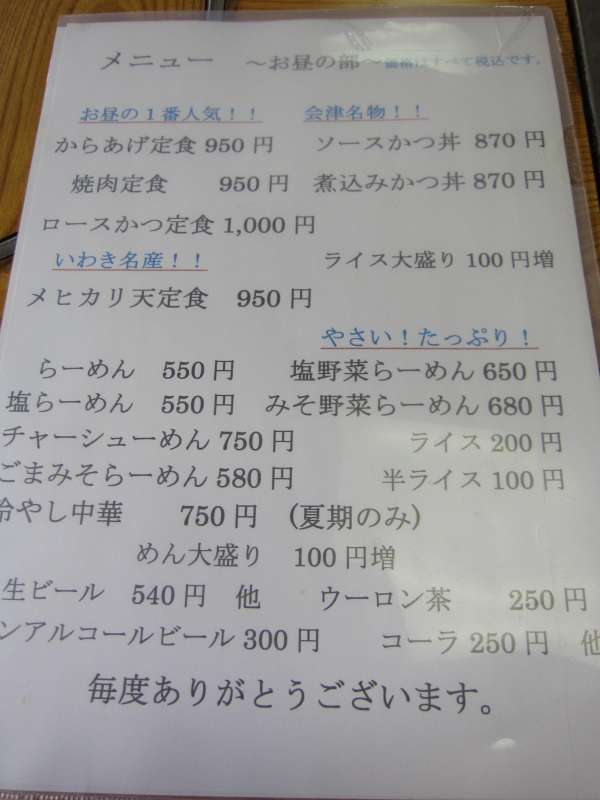 メニュー ～お昼の部～価格はすべて税込です。
お昼の１番人気！！ 会津名物！！
からあげ定食 950 円 ソースかつ丼 870 円
焼肉定食 950 円 煮込みかつ丼 870 円
ロースかつ定食 1,000 円
いわき名産！！ ライス大盛り 100 円増
メヒカリ天定食 950 円
やさい！たっぷり！
らーめん 550 円 塩野菜らーめん 650 円
塩らーめん 550 円 みそ野菜らーめん 680 円
チャーシューめん 750 円 ライス 200 円
ごまみそらーめん 580 円 半ライス 100 円
冷やし中華 750 円 (夏期のみ)
めん大盛り 100 円増
生ビール 540 円 他 ウーロン茶 250 円
ンアルコールビール 300 円 コーラ 250 円 他
毎度ありがとうございます。